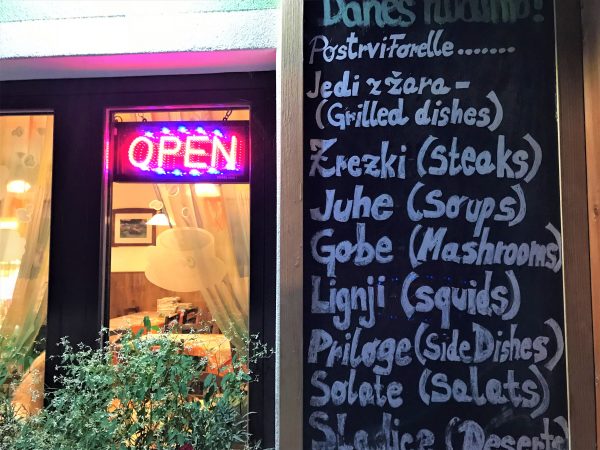 OPEN
Danes nudimo!
Postrvi Forelle........
Jedi z žara -
(Grilled dishes)
Zrezki (steaks)
Juhe (Soups)
Gobe (Mashrooms)
Lignji (squids)
Priloge (Side Dishes)
Solate (Salats)
Sladice (Deserts